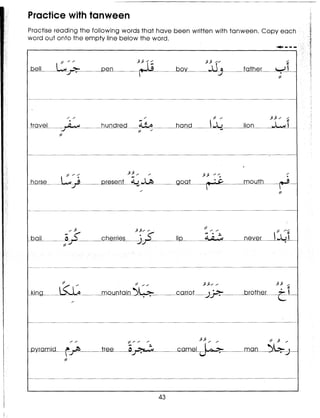 Practice with tanween
Practise reading the following words that have been written with tanween. Copy each
word out onto the empty line below the word.
bell جَرَسًا pen قَلَمٌ boy وَلَدٌ father أَبٍ
travel سَفَرٍ hundred مِئَةً hand يَدًا lion أَسَدٌ
horse فَرَسًا present هَدِيَّةٌ goat غَنَمٌ mouth فَمٍ
ball كُرَةٍ cherries كَرَزٌ lip شَفَةً never أَبَدًا
king مَلِكًا mountain جَبَلًا carrot جَزَرٌ brother أَخٌ
pyramid هَرَمٍ tree شَجَرَةً camel جَمَلٌ man رَجُلًا
43